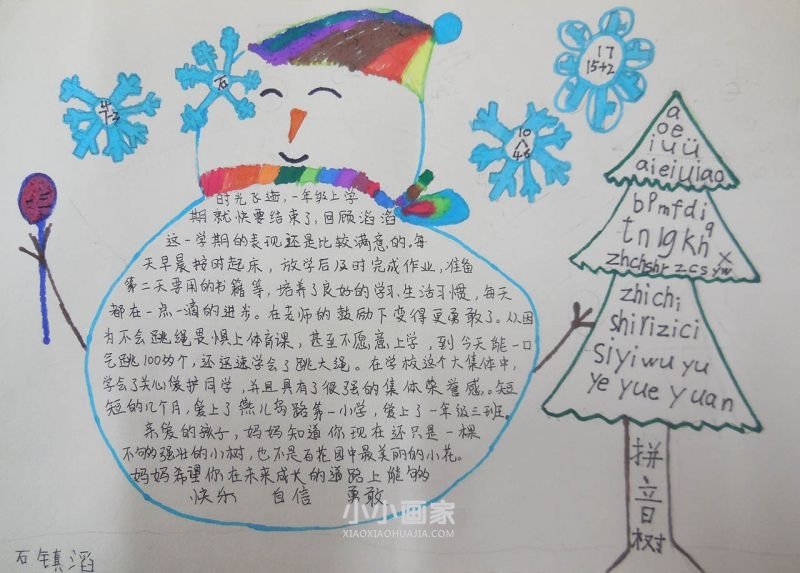 17
15+2
4
7-3
石
10
4 6
时光飞逝,一年级上学
期就快要结束了,回顾滔滔
这一学期的表现还是比较满意的。每
天早晨按时起床,放学后及时完成作业,准备
第二天要用的书籍等,培养了良好的学习、生活习惯,每天
都在一点一滴的进步。在老师的鼓励下变得更勇敢了。从因
为不会跳绳畏惧上体育课,甚至不愿意上学,到今天能一口
气跳100多个,还迅速学会了跳大绳。在学校这个大集体中,
学会了关心爱护同学,并且具有了很强的集体荣誉感。短
短的几个月,爱上了燕儿岛路第一小学,爱上了一年级三班。
亲爱的孩子,妈妈知道你现在还只是一棵
不够强壮的小树,也不是百花园中最美丽的小花。
妈妈希望你在未来成长的道路上能够
快乐 自信 勇敢
a
oe
iuü
aieiuiao
bpmfdi
tnlgkhq
zhchshrzcsyw
x
zhichi
shirizici
siyiwuyu
yeyueyuan
拼
音
树
石镇滔
小小画家
XIAOXIAOHUAJIA.COM